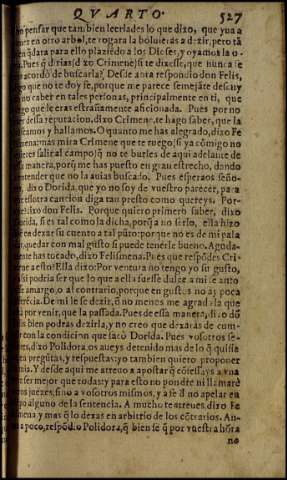 QVARTO. 527
pensar que tambien leerlades lo que dixo, que yua a
en otro arbol, te rogara la boluieras a dezir, pero tã
quedara para ello plaziẽdo a los Dioses, y oyamos la
Pues q̃ dirias (dixo Crimene) si te dixesse, que nunca se
acordo de buscarla? Desde aora respondio don Felis,
que no te doy fe, porque me parece semejãte descuy
no caber en tales personas, principalmente en ti, que
que le eras estrañamente aficionada. Pues por no
dessa reputacion, dixo Crimene, te hago saber, que la
y hallamos. O quanto me has alegrado, dixo Fe
mas mira Crimene que te ruego, si ya cómigo no
salir al campo, q̃ no te burles de aqui adelante de
manera, porq̃ me has puesto en gran estrecho, dando
entender que no la auias buscado. Pues esperaos señor
dixo Dorida, que yo no soy de vuestro parecer, para
essotra cancion diga tan presto como quereys. Por
dixo don Felis. Porque quiero primero saber, dixo
si es tal como la dicha, porq̃ a no serlo, ella hizo
en dexar su cuento a tal pũto: porque no es de mi pala
quedar con mal gusto si puede tenerle bueno. Aguda-
has tocado, dixo Felismena. Pues que respõdes Cri-
a esto? Ella dixo: Por ventura no tengo yo su gusto,
podria ser que lo que a ella fuesse dulce a mi se
amargo, o al contrario, porque en gustos no ay poca
De mi le se dezir, q̃ no menos me agrada la que
por venir, que la passada. Pues dessa manera, dixo dõ
bien podras dezirla, y no creo que dexaràs de cum-
con la condicion que sacò Dorida. Pues vosotros se-
dixo Polidora, os aueys detenido mas de lo q̃ quisie
pregũtas, y respuestas: yo tambien quiero proponer
Y desde aqui me atreuo a apostar q̃ cõtessays a vna
mejor que todas: y para esto no pondre ni llamarè
juezes, sino a vosotros mismos, y a fe q̃ no apelar en
alguno de la sentencia. A mucho te atreues dixo Fe
y mas q̃ lo dexas en arbitrio de los cõtrarios. An-
a poco, respõdio Polidora, q̃ bien se q̃ por vuestra hõra
no